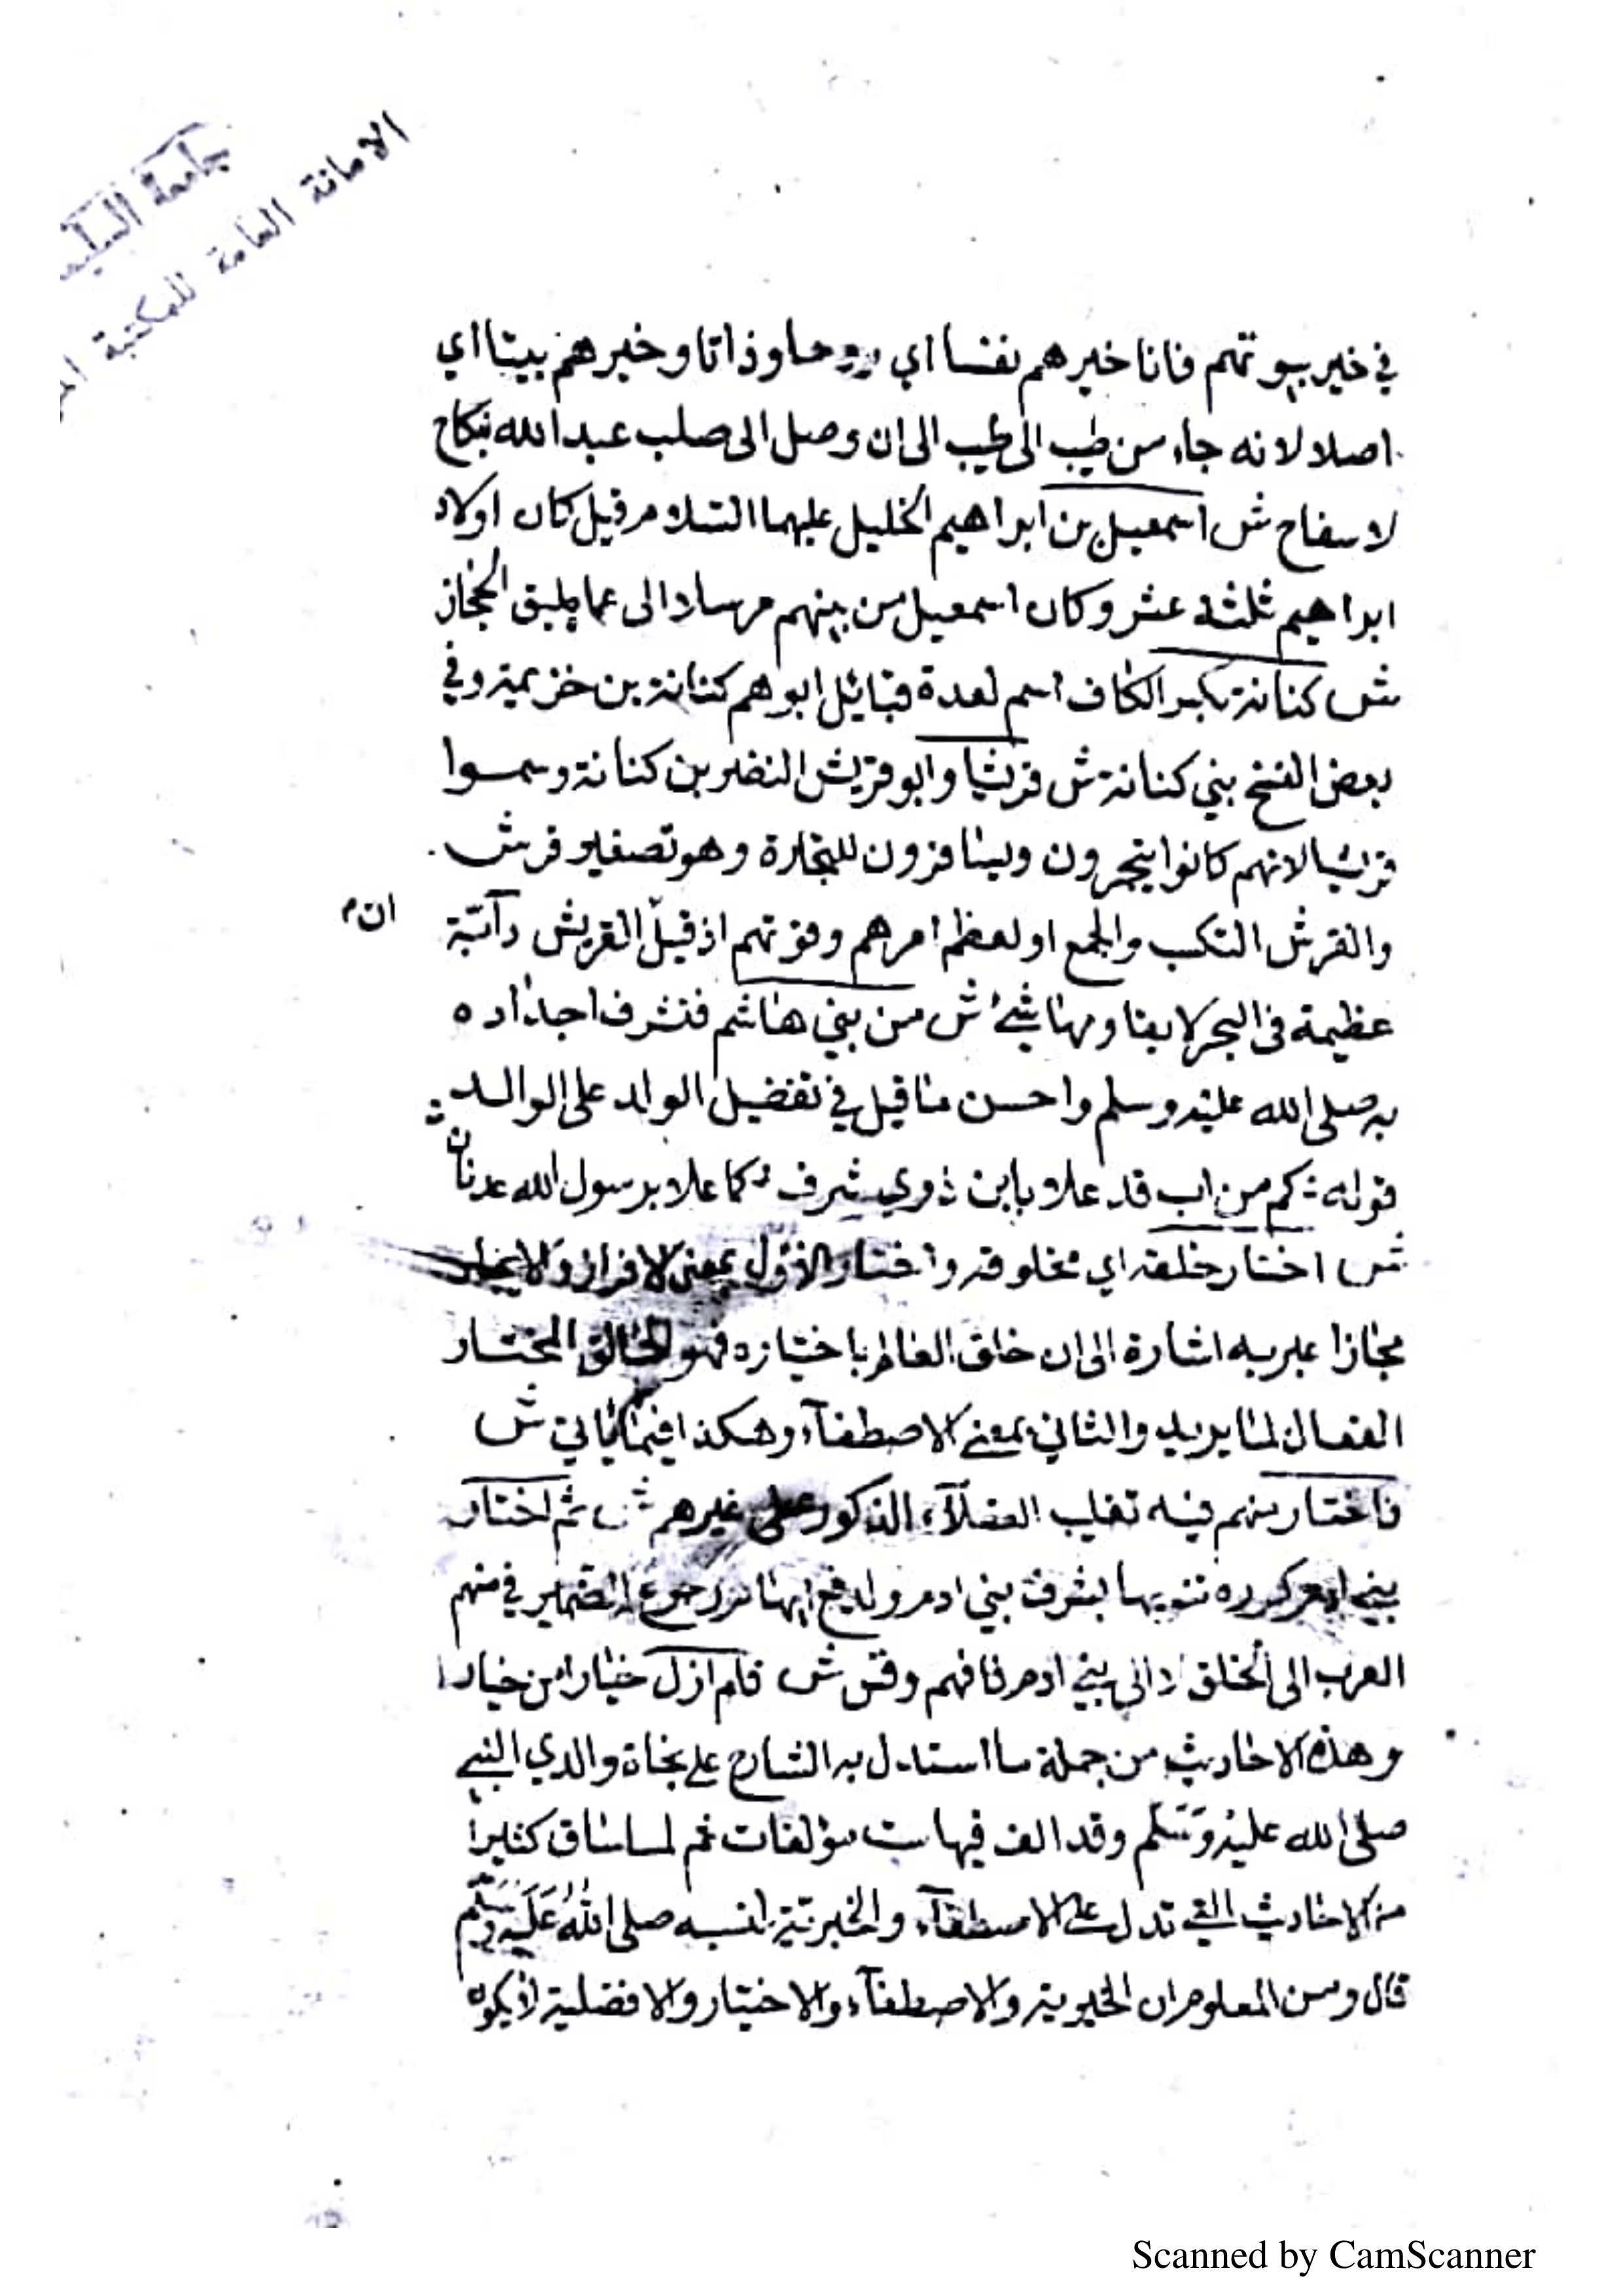 الامانة العامة للمكتبة
في خير بيوتهم فانا خيرهم نفسا اي روحا وذاتا وخيرهم بيتا اي
اصلا لانه جاء من طيب الى طيب الى ان وصل الى صلب عبد الله بنكاح
لا سفاح ش اسمعيل بن ابراهيم الخليل عليهما السلام قيل كان اولاد
ابراهيم ثلثة عشر وكان اسمعيل من بينهم مرسلا الى عماليق الحجاز
ش كنانة بكسر الكاف اسم لعدة قبائل ابوهم كنانة بن خزيمة وفي
بعض النسخ بني كنانة ش قريشا وابو قريش النضر بن كنانة وسموا
قريشا لانهم كانوا يتجرون ويسافرون للتجارة وهو تصغير قرش
والقرش التكسب والجمع او لعظم امرهم وقوتهم اذ قيل القريش دآبّة
ان
عظيمة في البحر لا يقاومها شئ ش من بني هاشم فتشرف اجداده
به صلى الله عليه وسلم واحسن ما قيل في تفضيل الولد على الوالد
قوله : كم من اب قد علا بابن ذوي شرف كما علا برسول الله عدنان
ش اختار خلقه اي مخلوقه واختار الاول بمعنى الافراز والايجاد
مجازا عبر به اشارة الى ان خلق العالم باختياره فهو الخالق المختار
الفعال لما يريد والثاني بمعنى الاصطفآء وهكذا فيما ياتي ش
فاختار منهم فيه تغليب العقلآء الذكور على غيرهم ش ثم اختار
بني ادم كرره تنويها بشرف بني ادم ولدفع ايهام رجوع الضمير في منهم
العرب الى الخلق لا الى بني ادم فافهم وقس ش فلم ازل خيارا من خيار
وهذه الاحاديث من جملة ما استدل به الشارح على نجاة والدي النبي
صلى الله عليه وَسَلم وقد الف فيها ست مؤلفات ثم لما ساق كثيرا
من الاحاديث التي تدل على الاصطفآء والخيرية لنسبه صلى اللهُ عَلَيه وسَلّم
قال ومن المعلوم ان الخيرية والاصطفآء والاختيار والافضلية لا يكون
Scanned by CamScanner